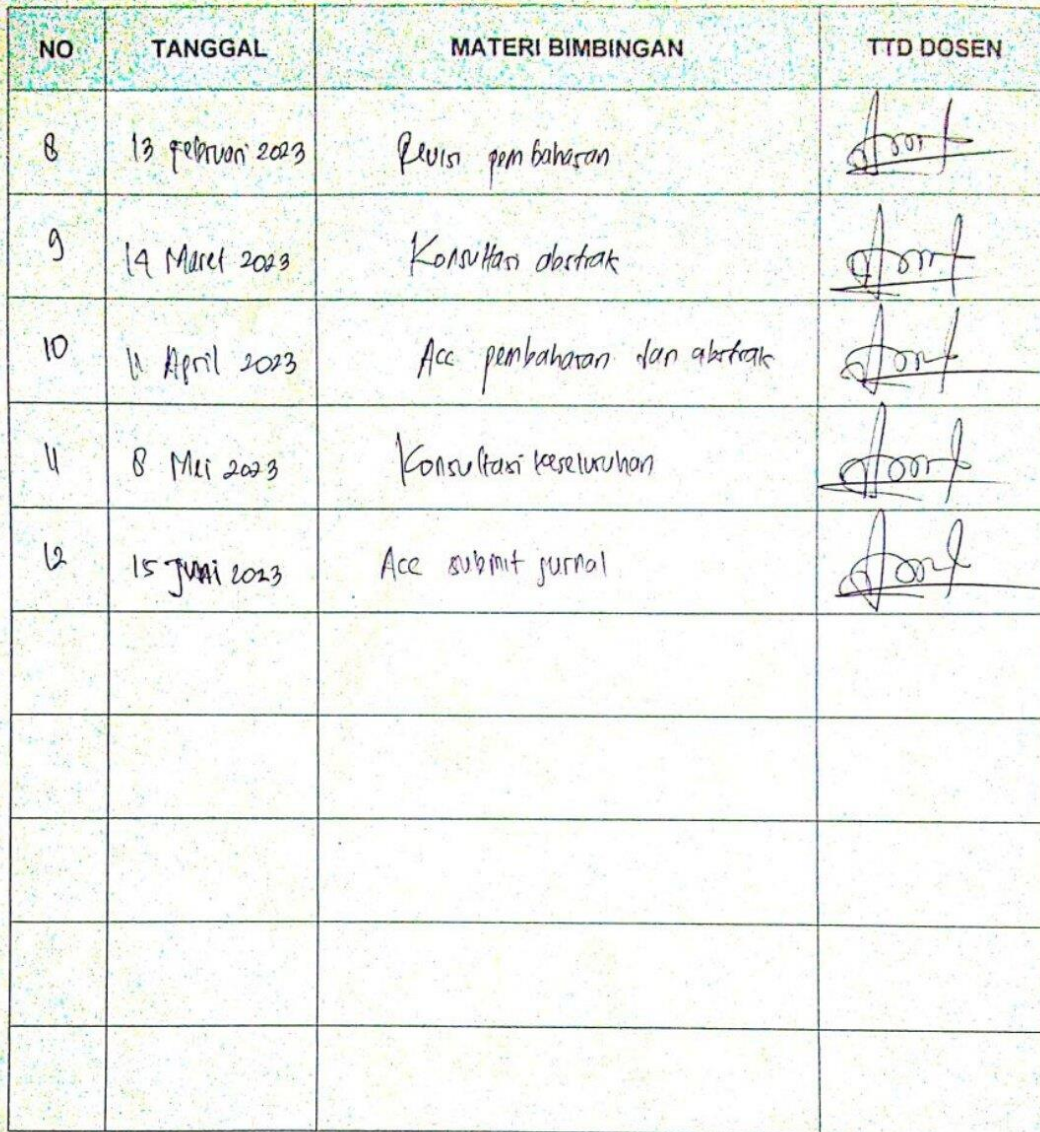 NO TANGGAL MATERI BIMBINGAN TTD DOSEN
8 13 Februari 2023 Revisi pembahasan
9 14 Maret 2023 Konsultasi abstrak
10 11 April 2023 Acc pembahasan dan abstrak
11 8 Mei 2023 Konsultasi keseluruhan
12 15 Juni 2023 Acc submit jurnal